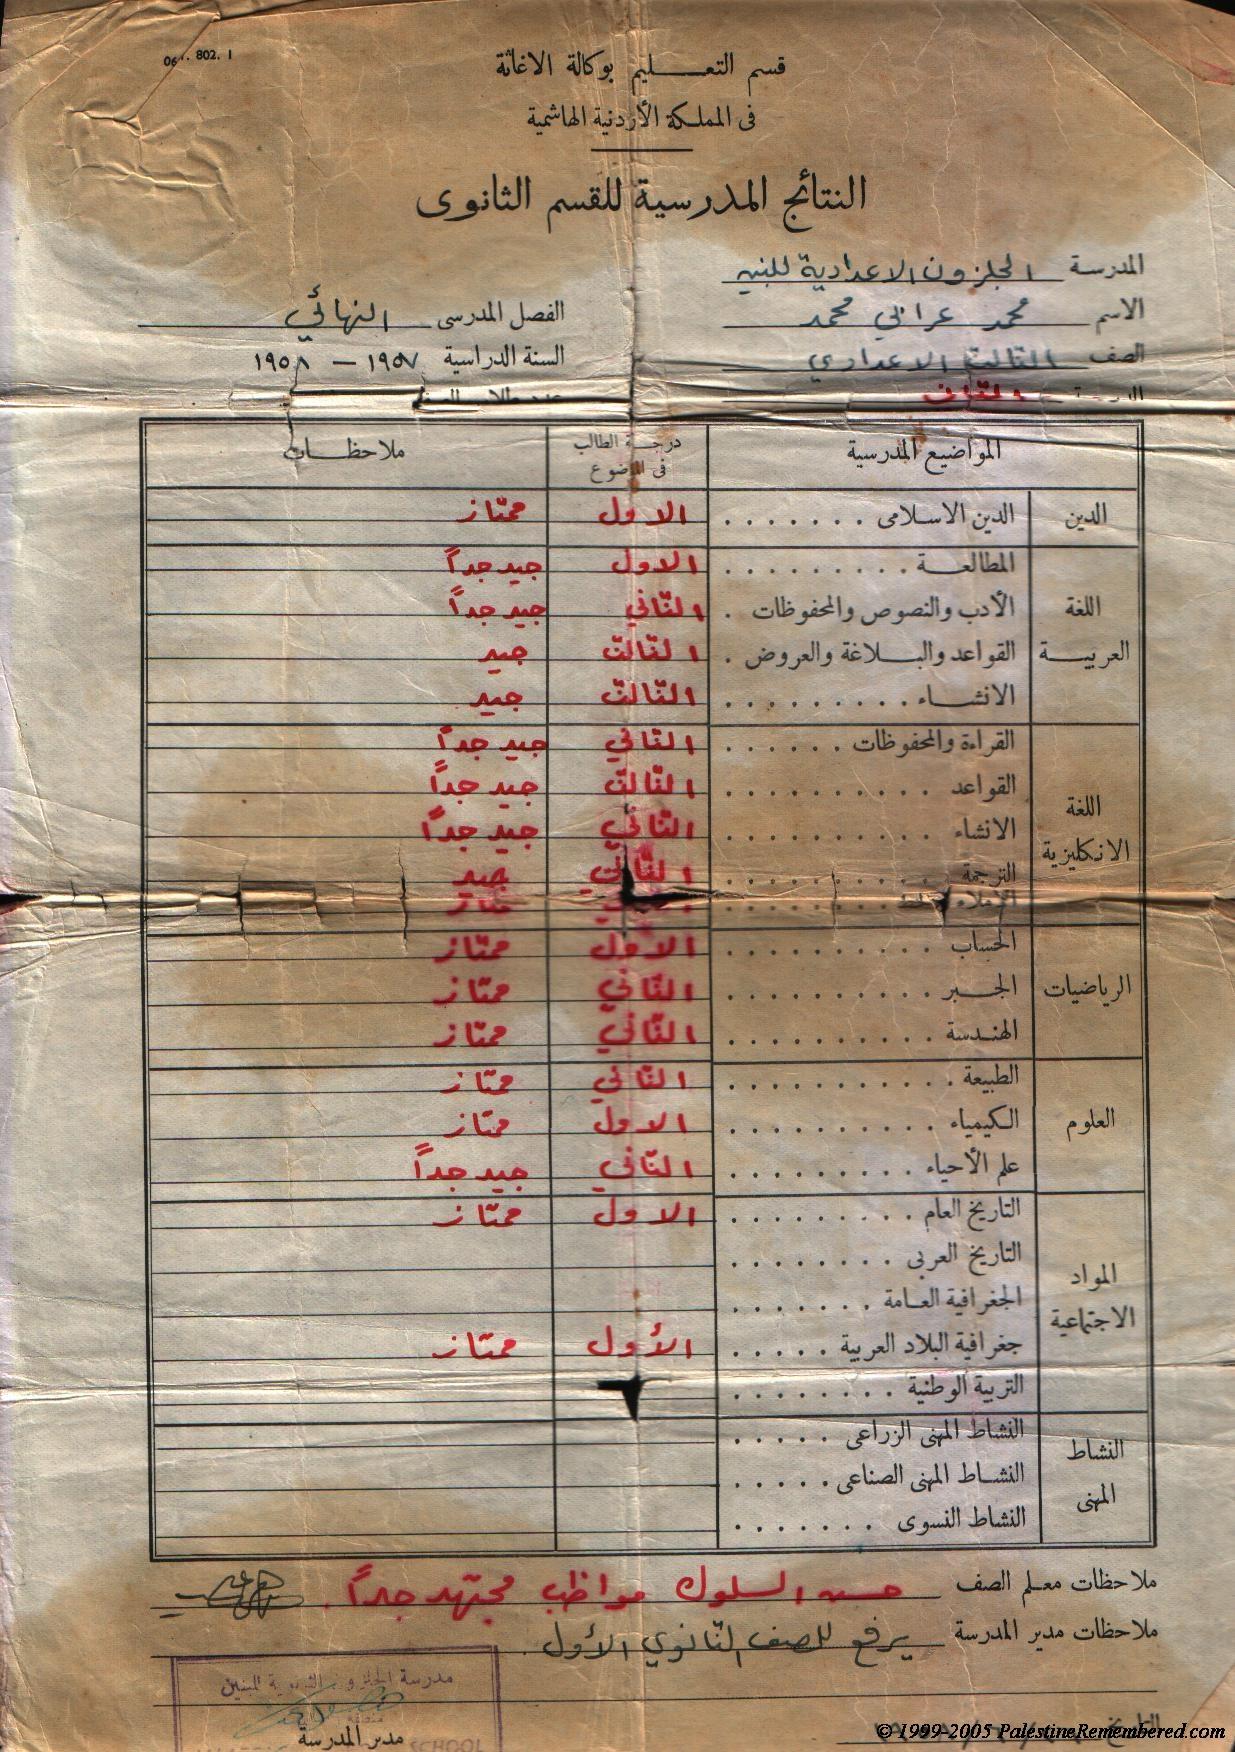 802. 1
قسم التعليم بوكالة الاغاثة
فى المملكة الأردنية الهاشمية
النتائج المدرسية للقسم الثانوى
المدرسة الجلزون الاعدادية للبنين
الاسم محمد عرابي محمد الفصل المدرسى النهائي
الصف الثالث الاعدادي السنة الدراسية ١٩٥٧ - ١٩٥٨
المواضيع المدرسية درجة الطالب فى الموضوع ملاحظات
الدين الدين الاسلامى . . . . . . . الاول ممتاز
اللغة العربية
المطالعة . . . . . . . . . الاول جيد جداً
الأدب والنصوص والمحفوظات . الثاني جيد جداً
القواعد والبلاغة والعروض . الثالث جيد
الانشاء . . . . . . . . . الثالث جيد
اللغة الانكليزية
القراءة والمحفوظات . . . . . . الثاني جيد جداً
القواعد . . . . . . . . . . الثالث جيد جداً
الانشاء . . . . . . . . . . الثاني جيد جداً
الترجمة . . . . . . . . . . الثاني جيد
الإملاء
الرياضيات
الحساب . . . . . . . . . . الاول ممتاز
الجبر . . . . . . . . . . الثاني ممتاز
الهندسة . . . . . . . . . . الثاني ممتاز
العلوم
الطبيعة . . . . . . . . . . . الثاني ممتاز
الكيمياء . . . . . . . . . . الاول ممتاز
علم الأحياء . . . . . . . . . الثاني جيد جداً
المواد الاجتماعية
التاريخ العام . . . . . . . . . الاول ممتاز
التاريخ العربى . . . . . . . .
الجغرافية العامة . . . . . . .
جغرافية البلاد العربية . . . . . الأول ممتاز
التربية الوطنية . . . . . . . .
النشاط المهنى
النشاط المهنى الزراعى . . . . .
النشاط المهنى الصناعى . . . . .
النشاط النسوى . . . . . . .
ملاحظات معلم الصف حسن السلوك مواظب مجتهد جداً .
ملاحظات مدير المدرسة يرفع للصف الثانوي الأول .
مدرسة للبنين
مدير المدرسة
SCHOOL
التاريخ
© 1999-2005 PalestineRemembered.com